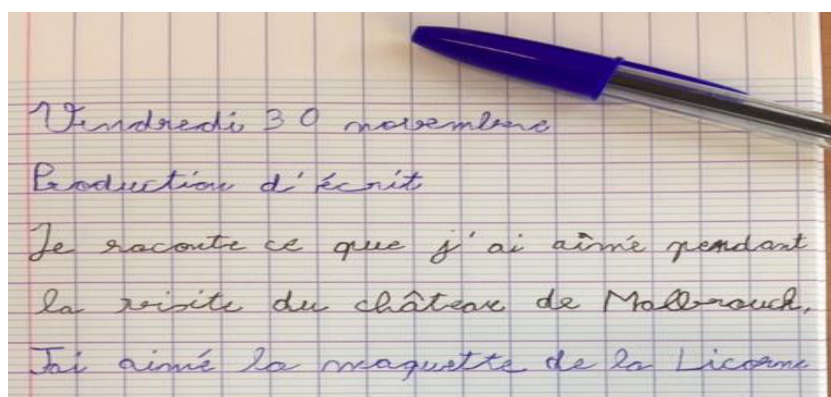 Vendredi 30 novembre
Production d'écrit
Je raconte ce que j'ai aimé pendant
la visite du château de Malbrouck.
J'ai aimé la maquette de la Licorne